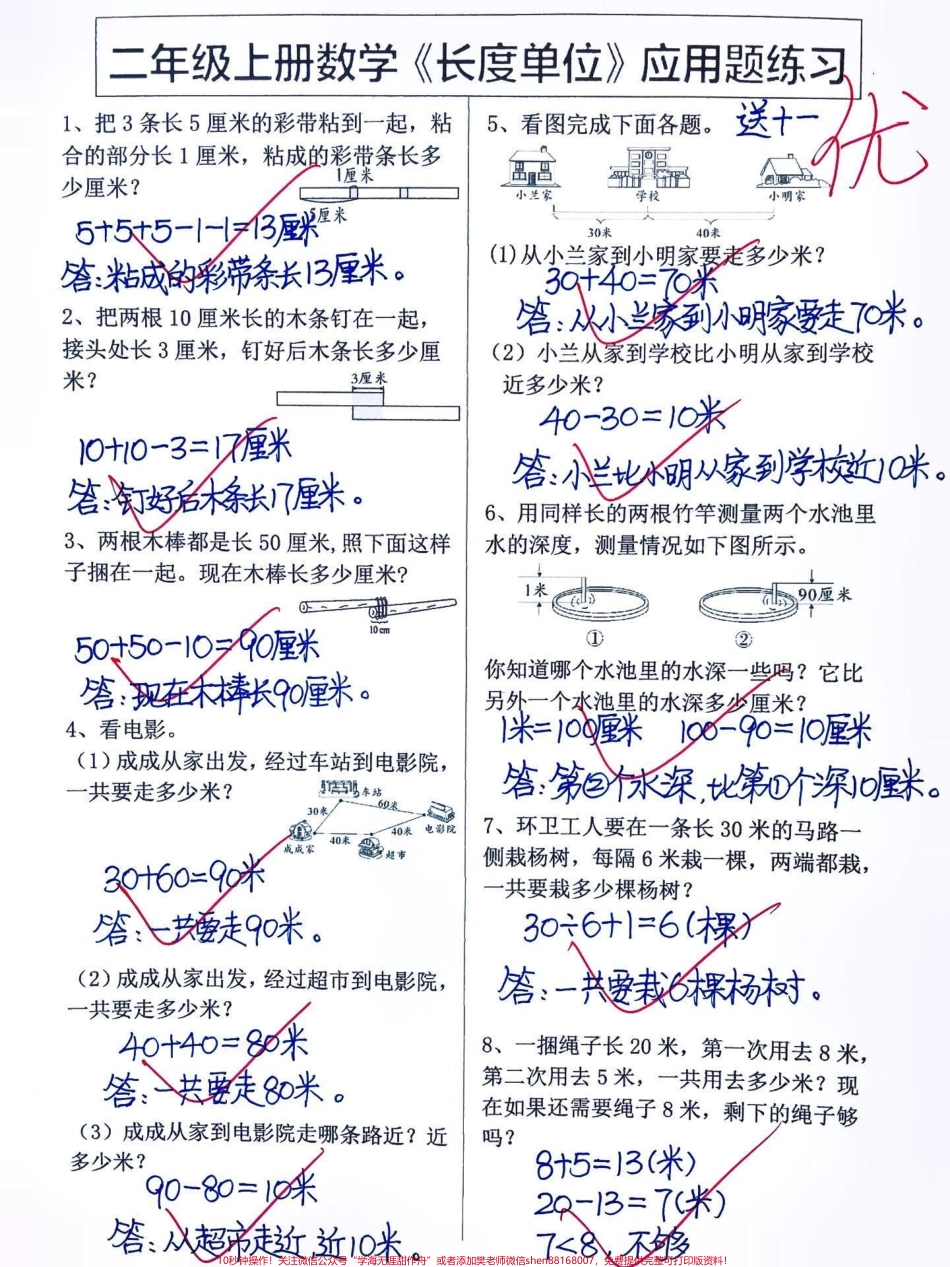 二年级上册数学《长度单位》应用题练习
优
1、把3条长5厘米的彩带粘到一起，粘
合的部分长1厘米，粘成的彩带条长多
少厘米？
1厘米
5厘米
5+5+5-1-1=13厘米
答:粘成的彩带条长13厘米。
2、把两根10厘米长的木条钉在一起，
接头处长3厘米，钉好后木条长多少厘
米？
3厘米
10+10-3=17厘米
答:钉好后木条长17厘米。
3、两根木棒都是长50厘米,照下面这样
子捆在一起。现在木棒长多少厘米?
10 cm
50+50-10=90厘米
答:现在木棒长90厘米。
4、看电影。
(1)成成从家出发,经过车站到电影院,
一共要走多少米？
车站
30米
60米
电影院
成成家
40米
40米
超市
30+60=90米
答:一共要走90米。
(2)成成从家出发,经过超市到电影院,
一共要走多少米？
40+40=80米
答:一共要走80米。
(3)成成从家到电影院走哪条路近？近
多少米？
90-80=10米
答:从超市走近 近10米。
5、看图完成下面各题。 送十一
小兰家 学校 小明家
30米 40米
(1)从小兰家到小明家要走多少米？
30+40=70米
答:从小兰家到小明家要走70米。
(2)小兰从家到学校比小明从家到学校
近多少米？
40-30=10米
答:小兰比小明从家到学校近10米。
6、用同样长的两根竹竿测量两个水池里
水的深度，测量情况如下图所示。
1米
90厘米
① ②
你知道哪个水池里的水深一些吗？它比
另外一个水池里的水深多少厘米？
1米=100厘米 100-90=10厘米
答:第②个水深,比第①个深10厘米。
7、环卫工人要在一条长30米的马路一
侧栽杨树，每隔6米栽一棵，两端都栽，
一共要栽多少棵杨树？
30÷6+1=6(棵)
答:一共要栽6棵杨树。
8、一捆绳子长20米，第一次用去8米，
第二次用去5米，一共用去多少米？现
在如果还需要绳子8米，剩下的绳子够
吗？
8+5=13(米)
20-13=7(米)
7<8，不够
10秒钟操作！关注微信公众号“学海无涯甜作舟”或者添加樊老师微信shen88168007，免费提供完整可打印版资料！